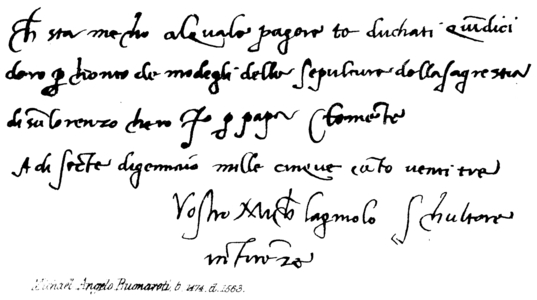 sta me ho al quale pagore to duchati quidici
doro p chonto de modegli delle sepulture della sagrestia
di sa lorenzo che io fo p papa Clemente
A di secte digennaio mille cinque ceto venti tre
Vostro Michelagniolo Schultore
in Firenze
Michael Angelo Buonaroti, b. 1474. d. 1563.